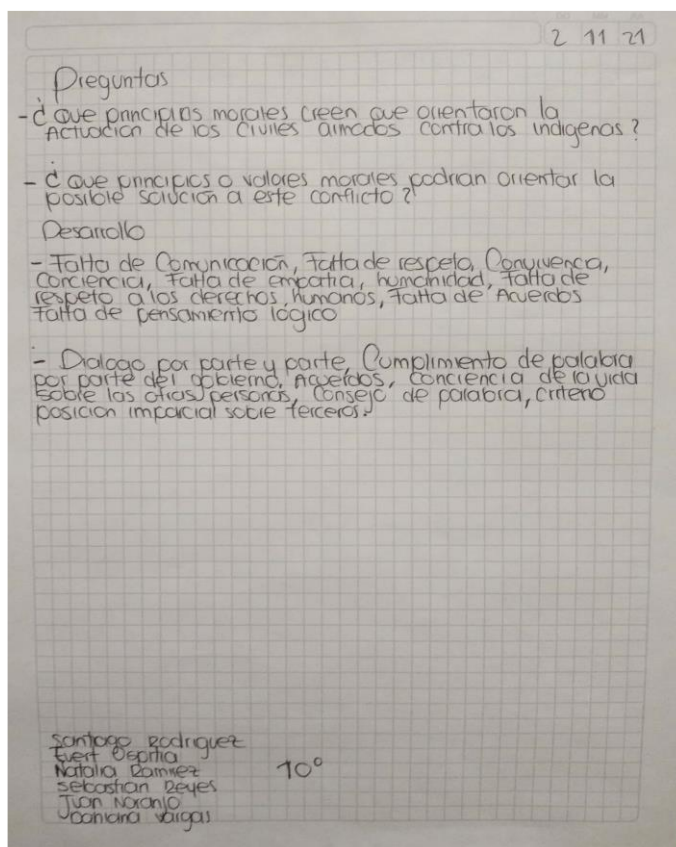 2 11 21
Preguntas
- ¿ Que principios morales creen que orientaron la
Actuación de los Civiles armados contra los indigenas ?
- ¿ Que principios o valores morales podrian orientar la
posible solución a este conflicto ?
Desarrollo
- Falta de Comunicación, Falta de respeto, Convivencia,
Conciencia, Falta de empatia, humanidad, falta de
respeto a los derechos, humanos, Falta de Acuerdos
Falta de pensamiento lógico
- Dialogo por parte y parte, Cumplimiento de palabra
por parte del gobierno, Acuerdos, Conciencia de la vida
sobre las otras personas, Consejo de palabra, criterio
posicion imparcial sobre terceros.
Santiago Rodriguez
Evert
Natalia Ramirez 10°
Sebastian Reyes
Juan Naranjo
Vargas